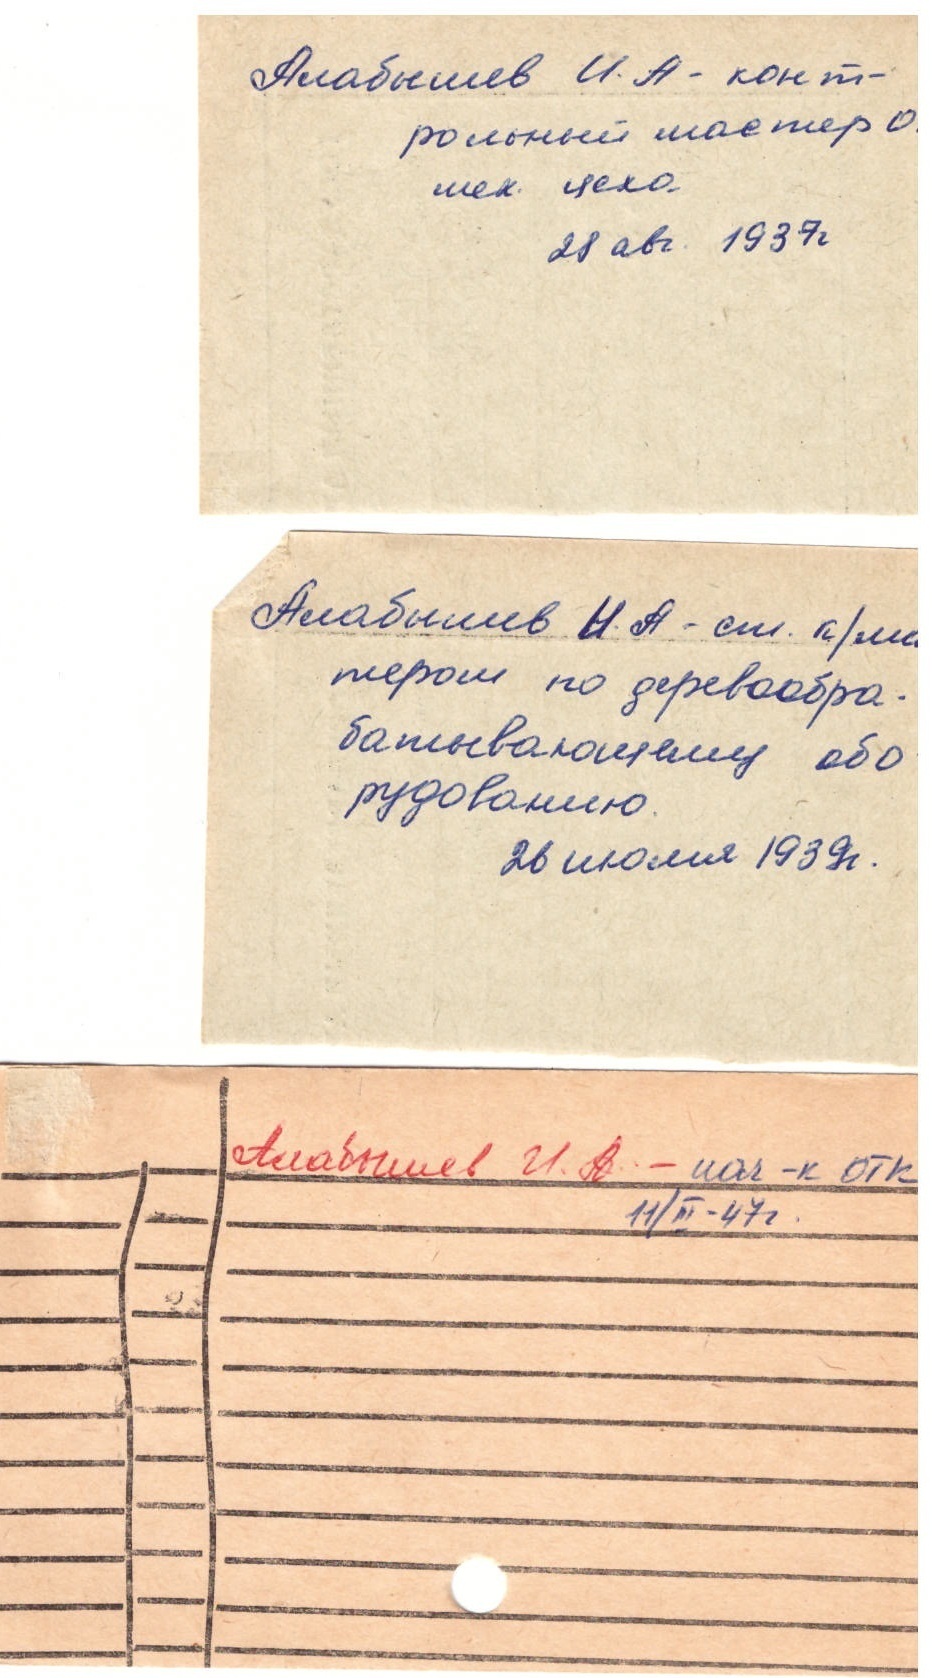 Алабышев И. А - конт-
рольный мастер О.
мех. цеха
28 авг. 1937г
Алабышев И. А - ст. к/ма
тером по деревообра-
батывающему обо
рудованию.
26 июля 1939г.
Алабышев И. А. - нач-к ОТК
11/III-47г.